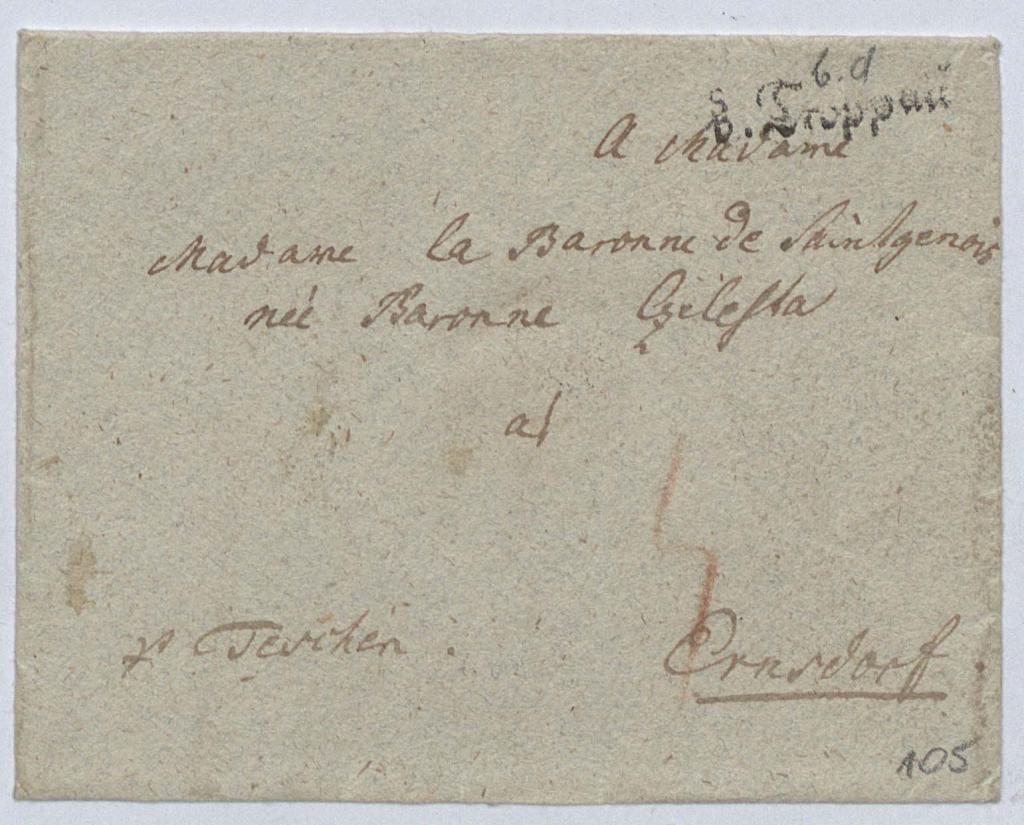 6. d
v. Troppau
A Madame
Madame la Baronne de Saintgenois
neé Baronne Czelesta
a
pr Teschen.
Ernsdorf.
105